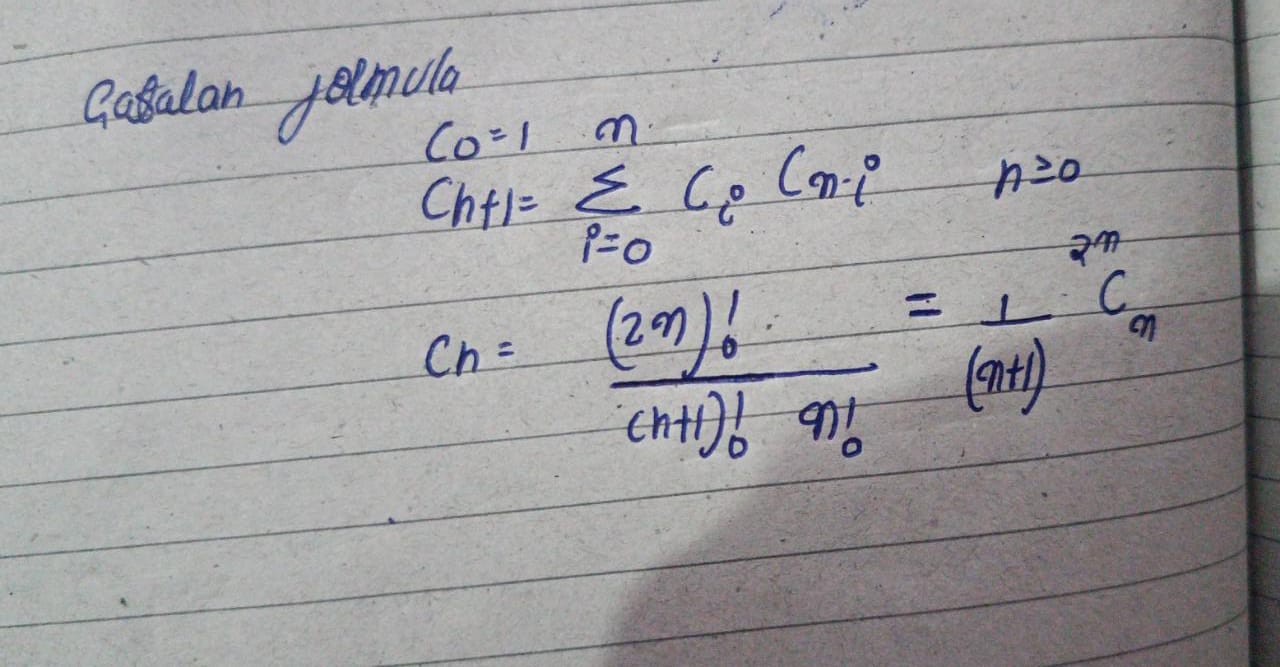 Catalan formula
C₀ = 1
Cn+1 = n Σ i=0 Cᵢ Cn-i n ≥ 0
Cn = (2n)! / (n+1)! n! = 1 / (n+1) ²ⁿCₙ